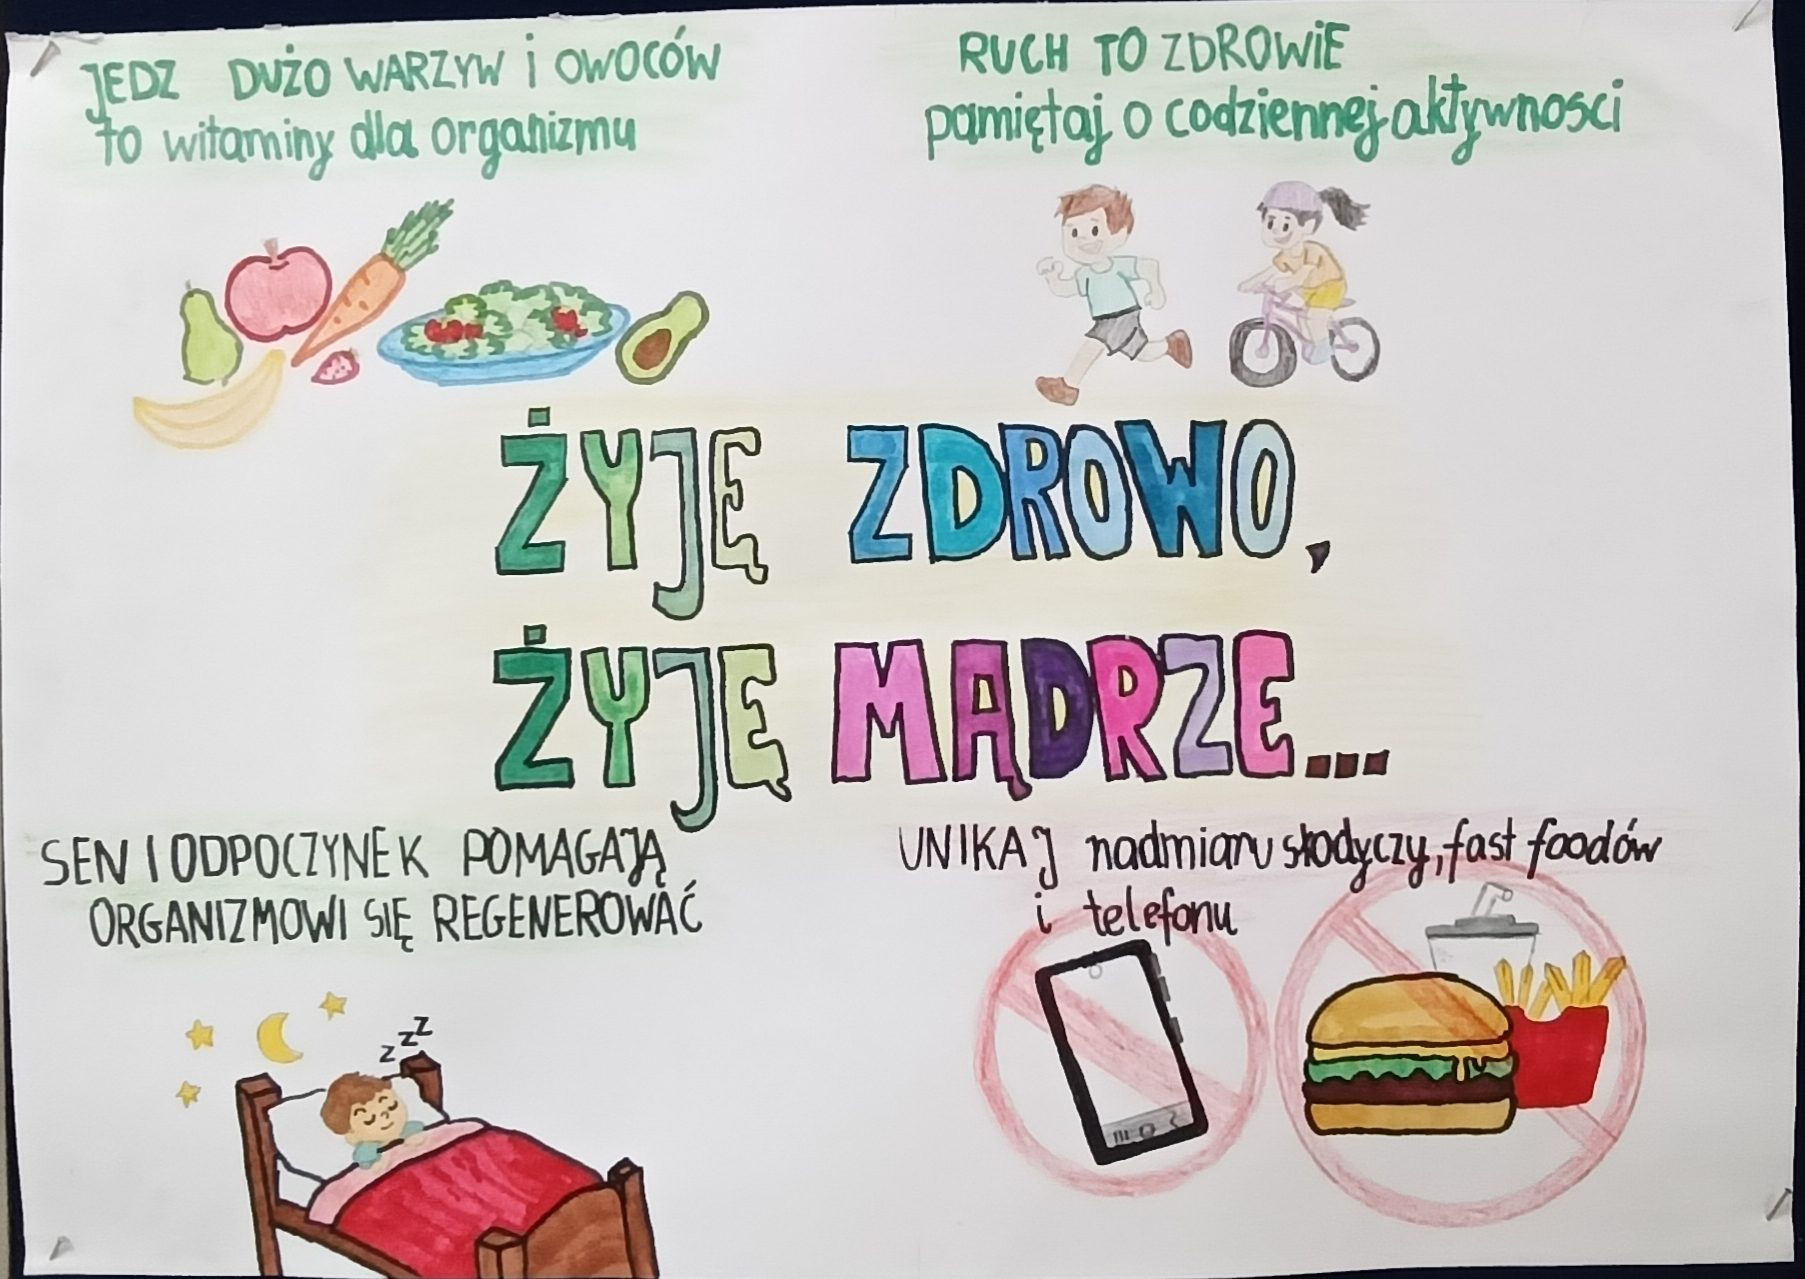 JEDZ DUŻO WARZYW i OWOCÓW
to witaminy dla organizmu
RUCH TO ZDROWiE
pamiętaj o codziennej aktywnosci
ŻYJĘ ZDROWO,
ŻYJĘ MĄDRZE...
SEN I ODPOCZYNEK POMAGAJĄ
ORGANIZMOWI SIĘ REGENEROWAĆ
zzZ
UNIKAJ nadmiaru słodyczy, fast foodów
i telefonu